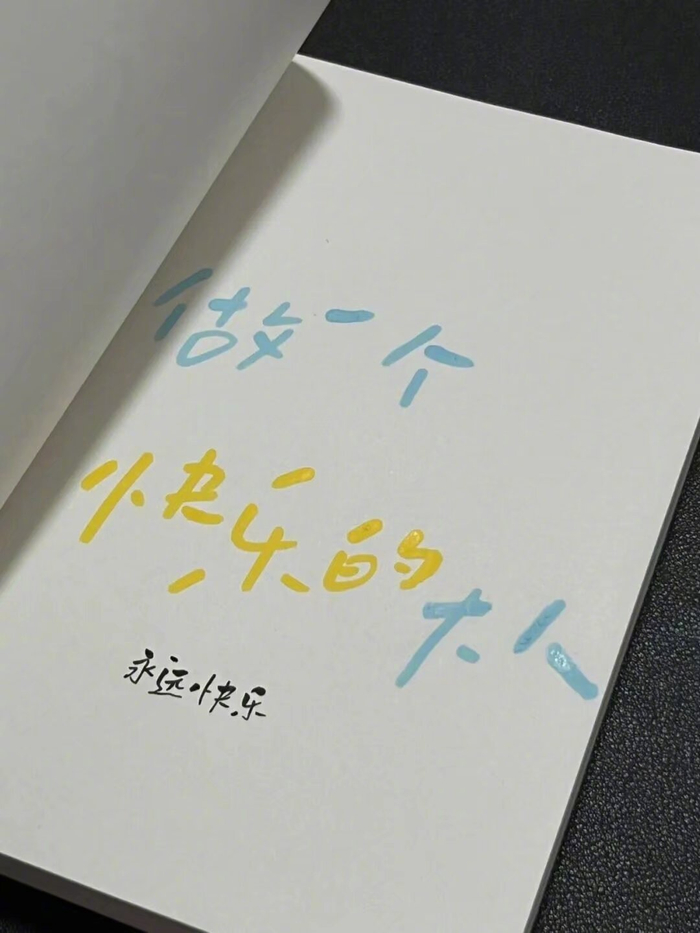 做一个
快乐的
大人
永远快乐